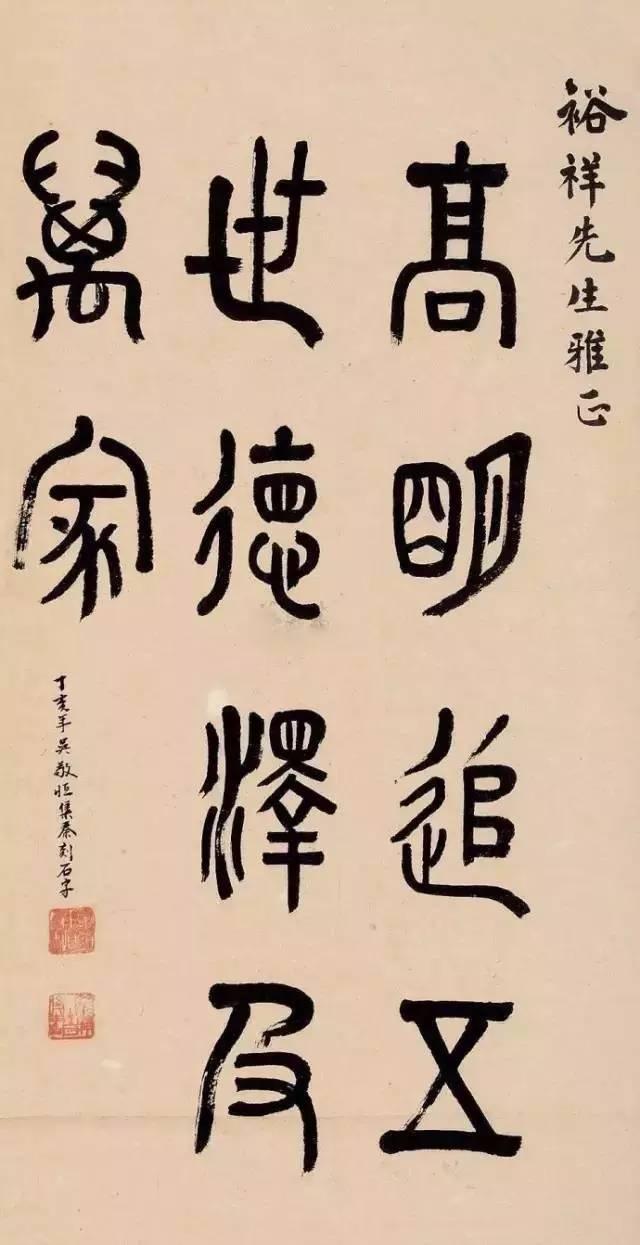 裕祥先生雅正
高明追五
世德澤及
萬家
丁亥年吳敬恆集秦刻石字